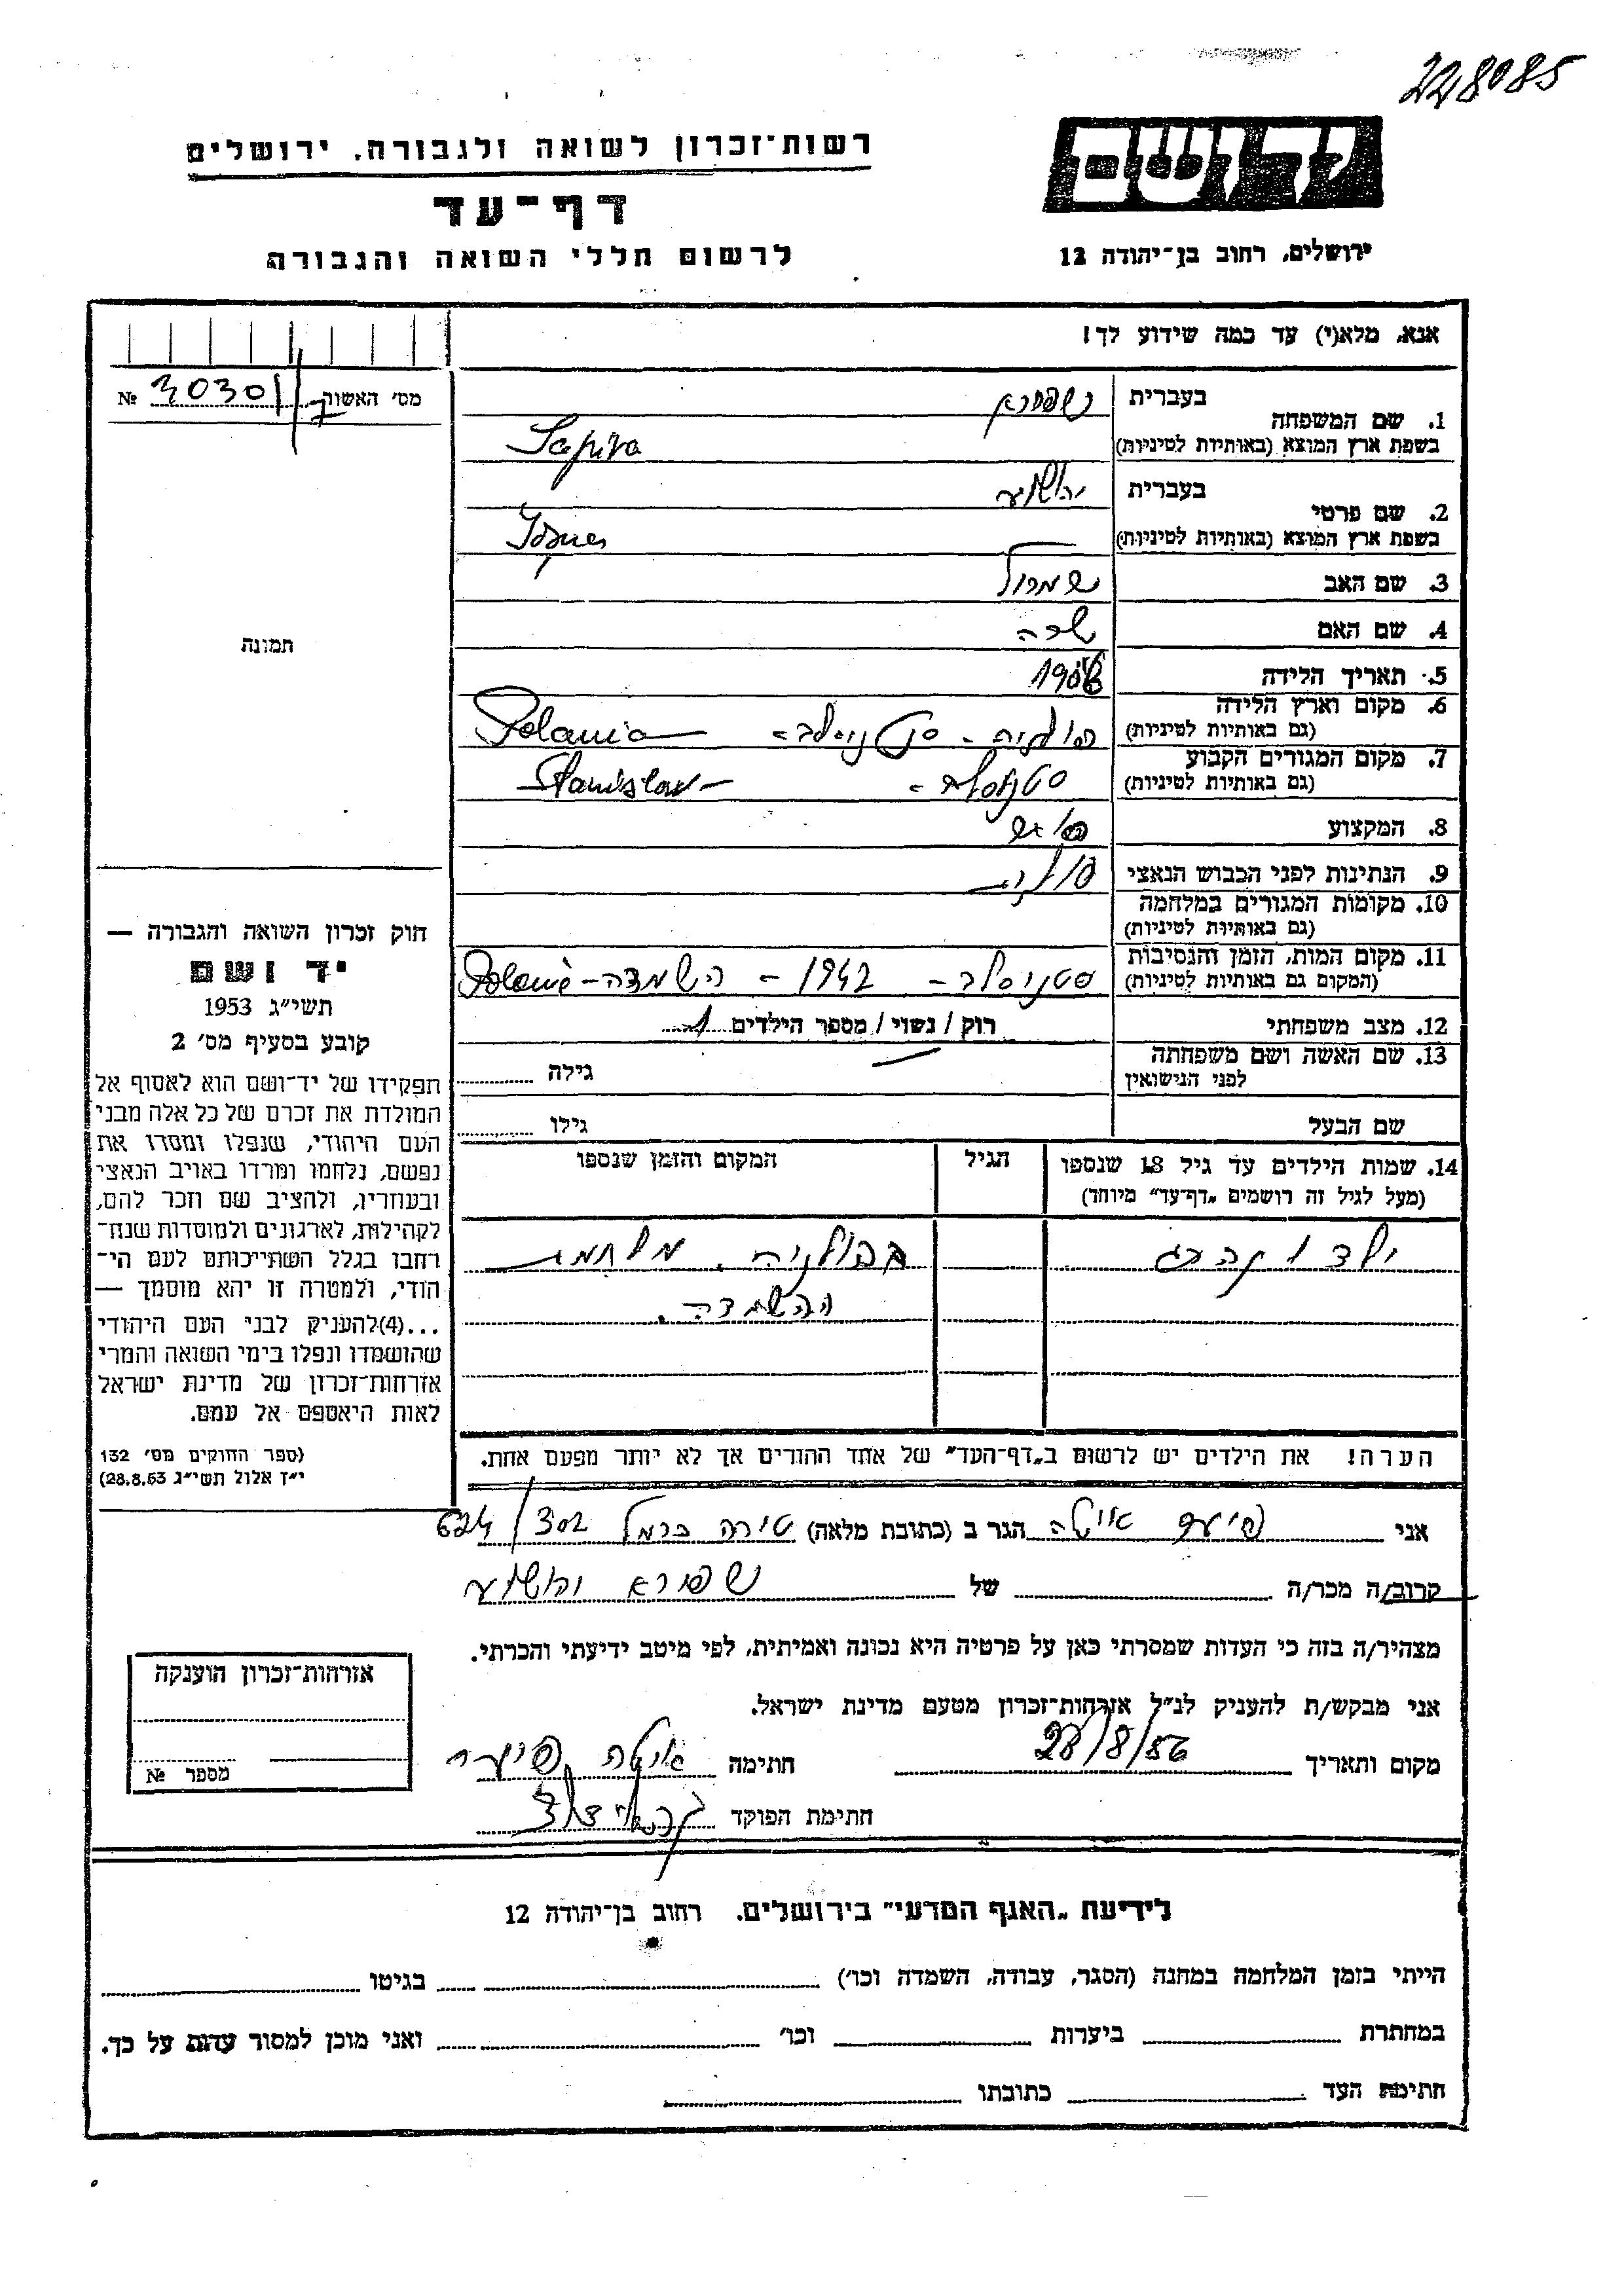 228085
יד ושם
ירושלים, רחוב בן־יהודה 12
רשות־זכרון לשואה ולגבורה, ירושלים
דף־עד
לרשום חללי השואה והגבורה
אנא, מלא(י) עד כמה שידוע לך!
מס׳ האשור 30301/7 №
תמונה
1. שם המשפחה בעברית שפירא
בשפת ארץ המוצא (באותיות לטיניות) Sapira
2. שם פרטי בעברית יהושוע
בשפת ארץ המוצא (באותיות לטיניות)
3. שם האב שמואל
4. שם האם שרה
5. תאריך הלידה
6. מקום וארץ הלידה (גם באותיות לטיניות) פולניה - סטניסלב - Polania
7. מקום המגורים הקבוע (גם באותיות לטיניות) סטניסלב - Stanislav -
8. המקצוע
9. הנתינות לפני הכבוש הנאצי פולנית
10. מקומות המגורים במלחמה (גם באותיות לטיניות)
11. מקום המות, הזמן והנסיבות (המקום גם באותיות לטיניות) סטניסלב - 1942 - השמדה - Polania
12. מצב משפחתי רוק / נשוי / מספר הילדים 1
13. שם האשה ושם משפחתה לפני הנישואין גילה
שם הבעל גילו
14. שמות הילדים עד גיל 18 שנספו הגיל המקום והזמן שנספו
(מעל לגיל זה רושמים „דף־עד״ מיוחד)
ילד 1 נהרג בפולניה. מלחמת
ההשמדה.
הערה! את הילדים יש לרשום ב„דף־העד״ של אחד ההורים אך לא יותר מפעם אחת.
חוק זכרון השואה והגבורה —
יד ושם
תשי״ג 1953
קובע בסעיף מס׳ 2
תפקידו של יד־ושם הוא לאסוף אל
המולדת את זכרם של כל אלה מבני
העם היהודי, שנפלו ומסרו את
נפשם, נלחמו ומרדו באויב הנאצי
ובעוזריו, ולהציב שם וזכר להם,
לקהילות, לארגונים ולמוסדות שנח־
רבו בגלל השתייכותם לעם הי־
הודי, ולמטרה זו יהא מוסמך —
...(4)להעניק לבני העם היהודי
שהושמדו ונפלו בימי השואה והמרי
אזרחות־זכרון של מדינת ישראל
לאות היאספם אל עמם.
(ספר החוקים מס׳ 132
י״ז אלול תשי״ג 28.8.53)
אני איטה הגר ב (כתובת מלאה) טירה כרמל 302/624
קרוב/ה מכר/ה של שפירא יהושוע
מצהיר/ה בזה כי העדות שמסרתי כאן על פרטיה היא נכונה ואמיתית, לפי מיטב ידיעתי והכרתי.
אני מבקש/ת להעניק לנ״ל אזרחות־זכרון מטעם מדינת ישראל.
מקום ותאריך 28/8/56 חתימה איטה
חתימת הפוקד
אזרחות־זכרון הוענקה
מספר №
לידיעת „האגף המדעי״ בירושלים, רחוב בן־יהודה 12
הייתי בזמן המלחמה במחנה (הסגר, עבודה, השמדה וכו׳) בגיטו
במחתרת ביערות וכו׳ ואני מוכן למסור עדות על כך.
חתימת העד כתובתו